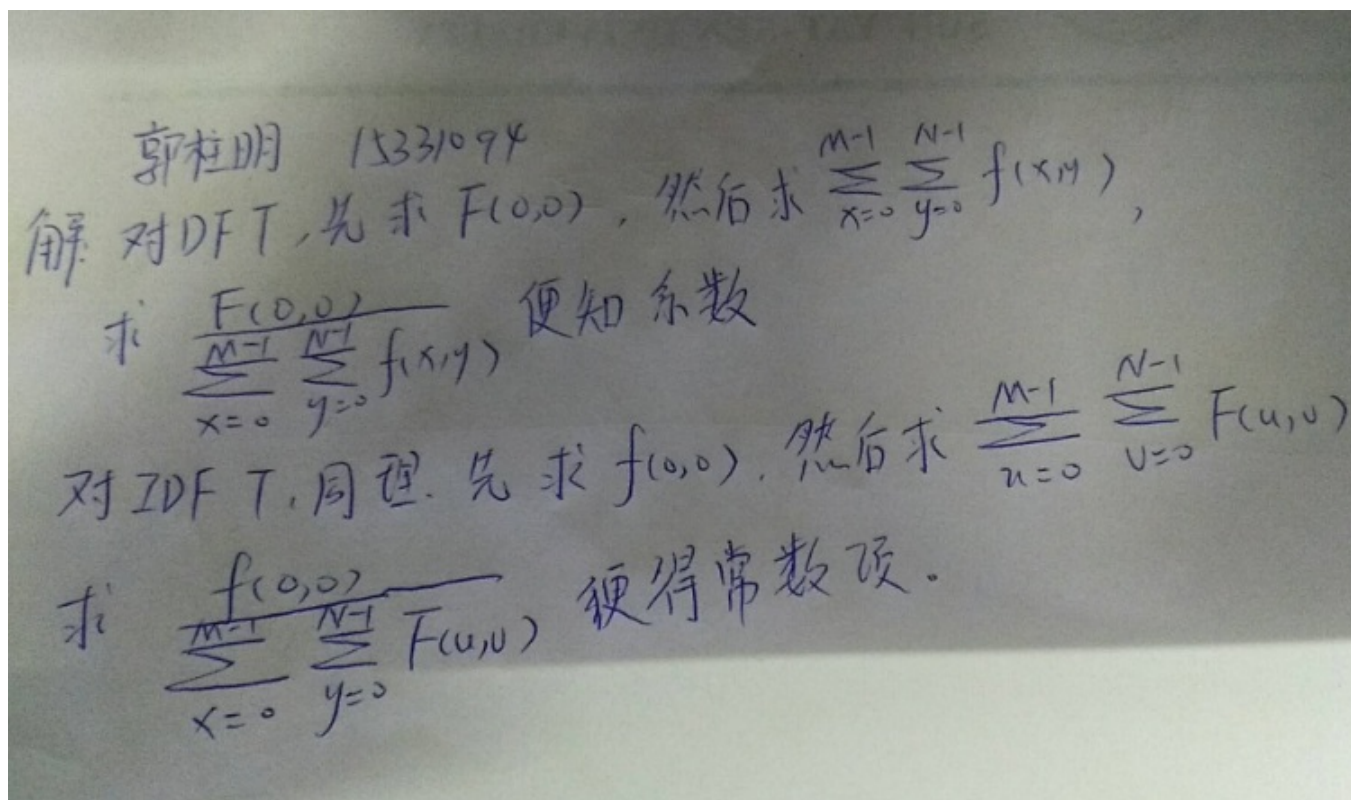 郭桂明 15331094
解: 对DFT,先求 F(0,0), 然后求 \sum_{x=0}^{M-1} \sum_{y=0}^{N-1} f(x,y),
求 \frac{F(0,0)}{\sum_{x=0}^{M-1} \sum_{y=0}^{N-1} f(x,y)} 便知系数
对IDFT,同理.先求 f(0,0), 然后求 \sum_{u=0}^{M-1} \sum_{v=0}^{N-1} F(u,v)
求 \frac{f(0,0)}{\sum_{x=0}^{M-1} \sum_{y=0}^{N-1} F(u,v)} 便得常数项。